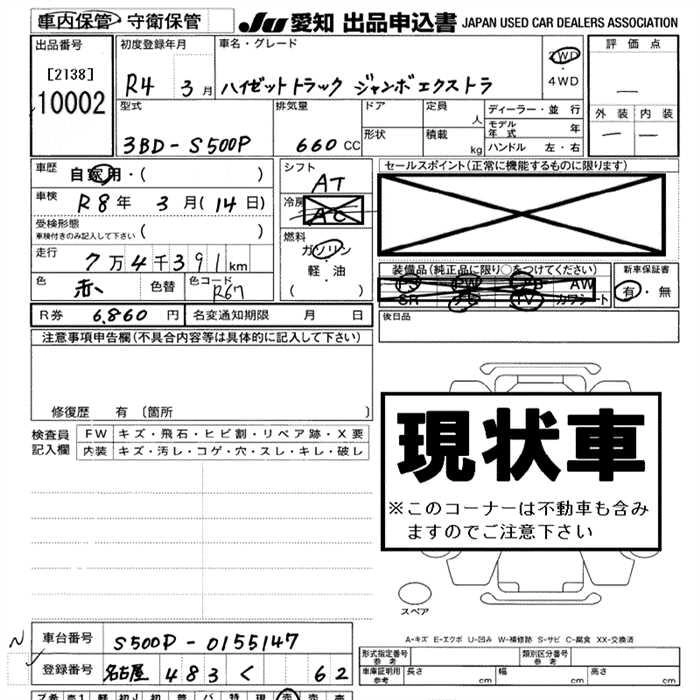 車内保管 守衛保管 JU 愛知 出品申込書 JAPAN USED CAR DEALERS ASSOCIATION
出品番号 初度登録年月 車名・グレード 評価点
[2138] R4 3月 ハイゼットトラック ジャンボエクストラ 2WD・4WD —
10002 型式 排気量 ドア 定員 人 ディーラー・並行 外装 内装
モデル年式 年
3BD-S500P 660cc 形状 積載 kg ハンドル 左・右 — —
車歴 自家用・( ) シフト AT セールスポイント(正常に機能するものに限ります)
車検 R8年 3月(14日) 冷房 AC
受検形態 車検付きのみ記入して下さい ( ) 燃料
走行 7万4千391km ガソリン・軽・油 ( ) 装備品(純正品に限り○をつけてください) 新車保証書
色 赤 色替 色コード R67 PS PW AB AW 有・無
SR TV カワシート
R券 6,860円 名変通知期限 月 日 後日品
注意事項申告欄(不具合内容等は具体的に記入して下さい)
修復歴 有 [箇所 ]
現状車
※このコーナーは不動車も含み
ますのでご注意下さい
検査員記入欄 FW キズ・飛石・ヒビ割・リペア跡・X要
内装 キズ・汚レ・コゲ・穴・スレ・キレ・破レ
スペア
A-キズ E-エクボ U-凹み W-補修跡 S-サビ C-腐食 XX-交換済
車台番号 S500P-0155147
登録番号 名古屋 483 く 62
形式指定番号 参考 類別区分番号 参考
車庫証明用 参考 長さ cm 幅 cm 高さ cm